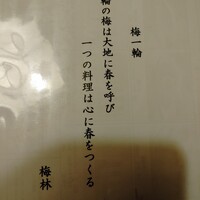 梅一輪
輪の梅は大地に春を呼び
一つの料理は心に春をつくる
梅林